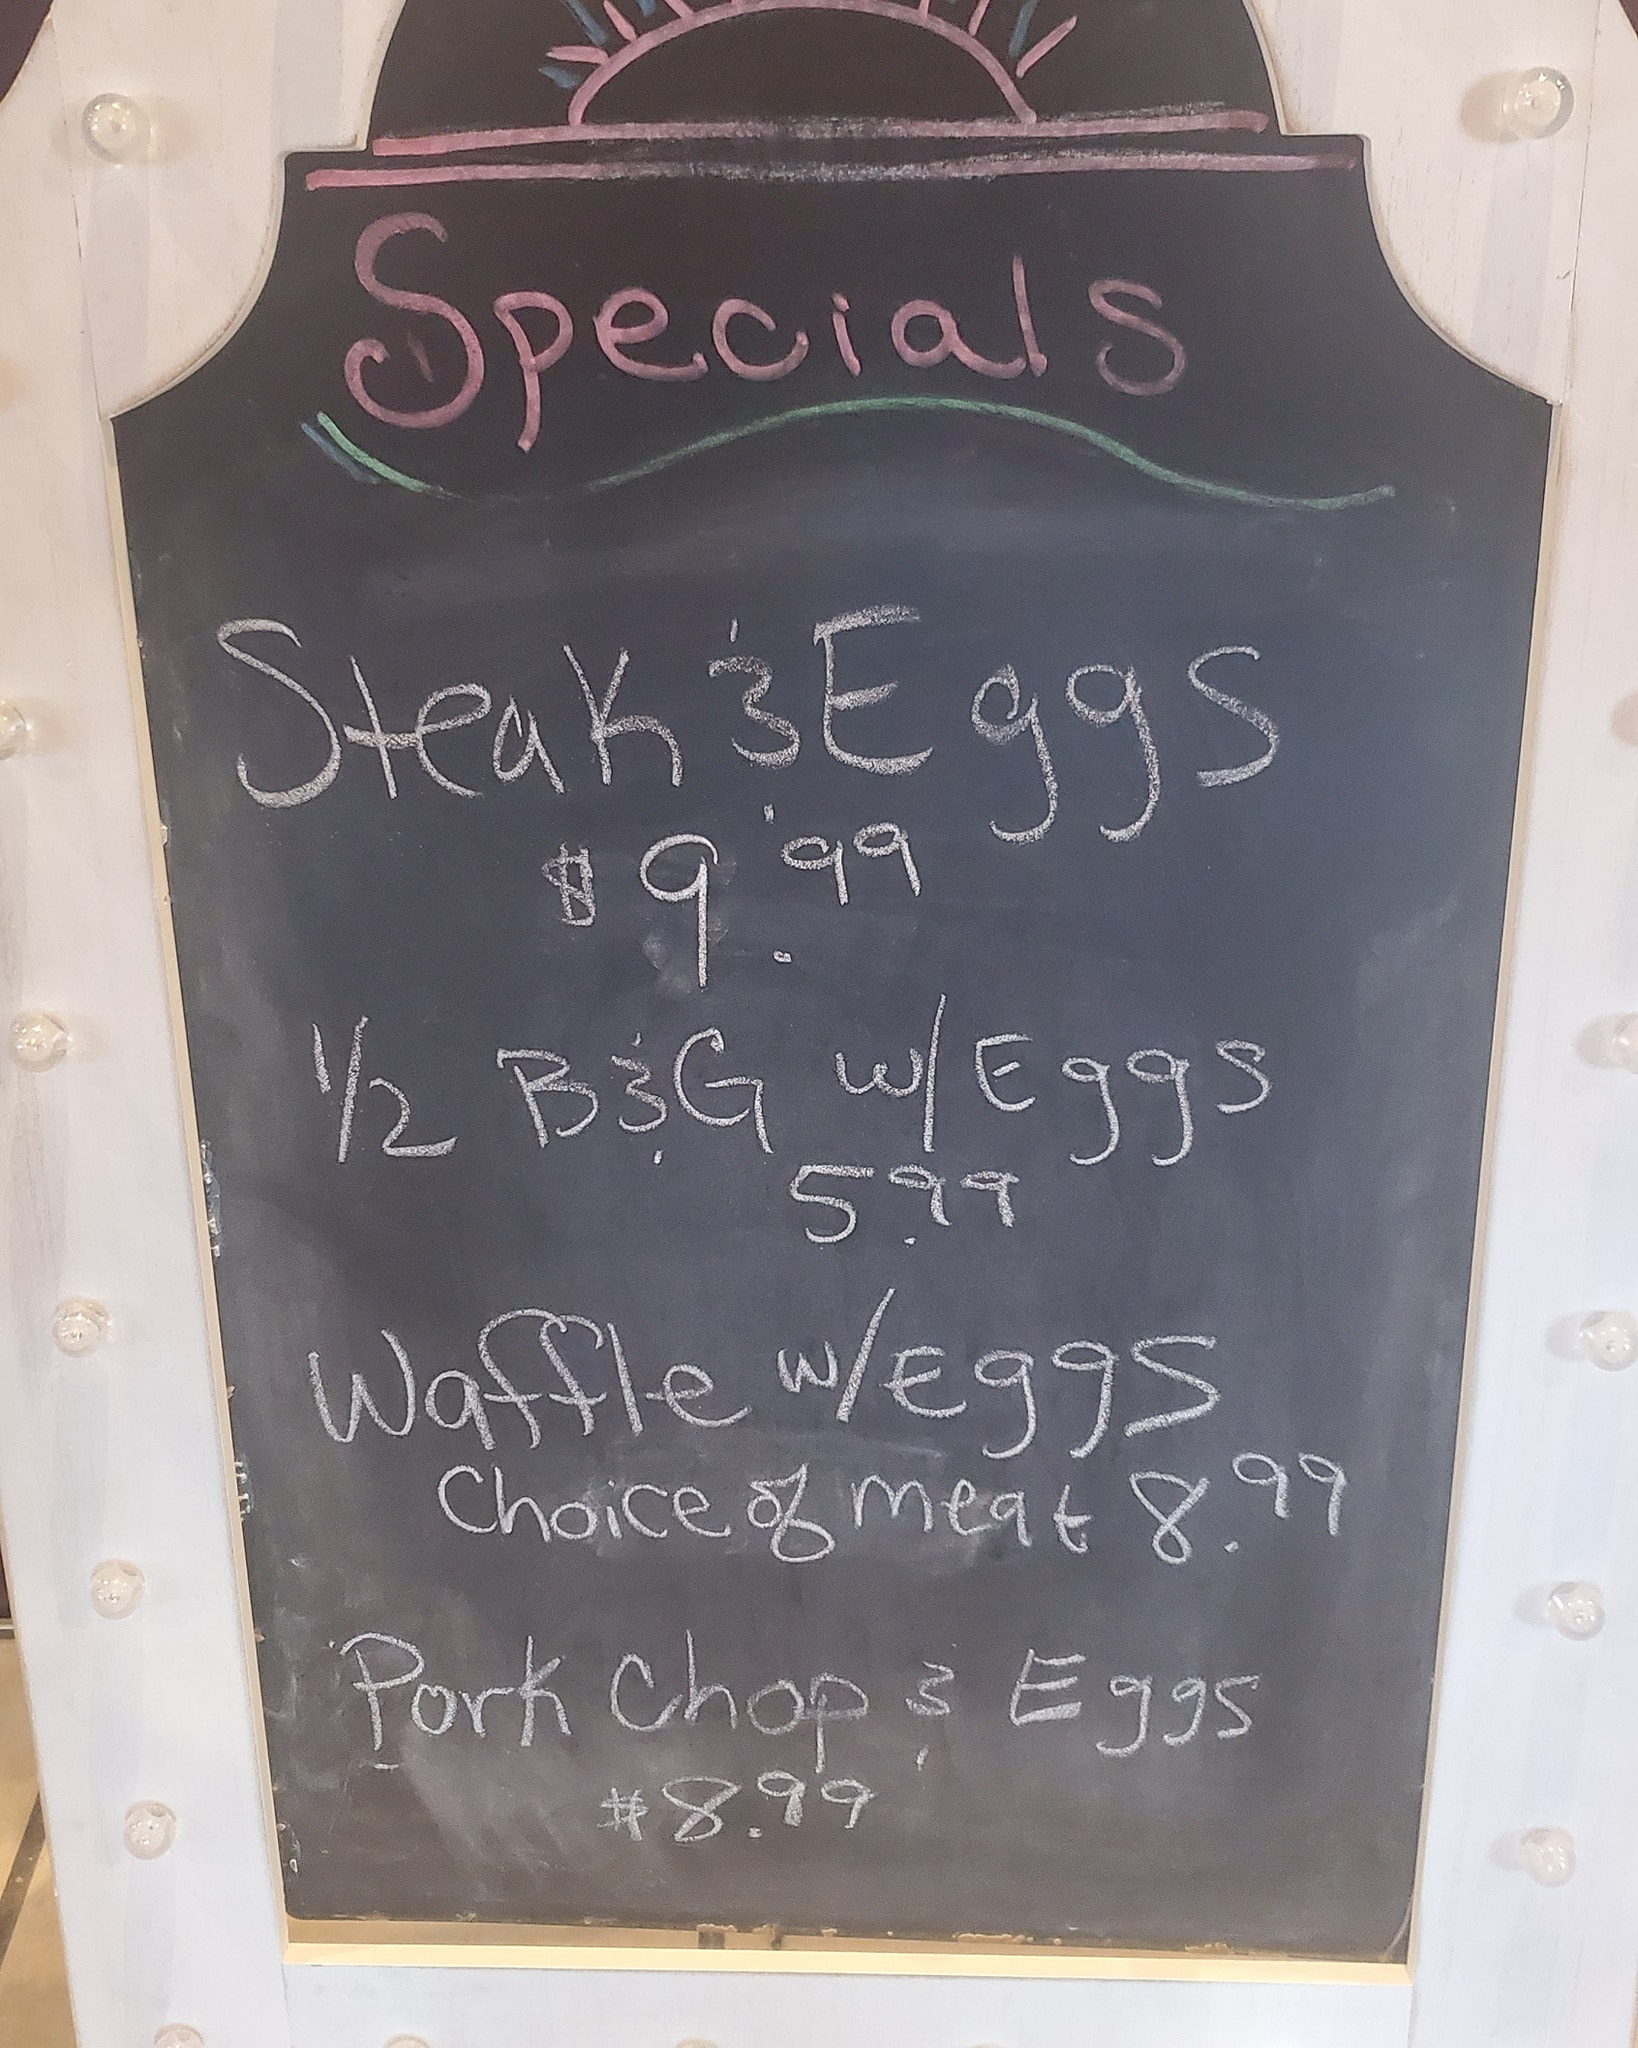 Specials
Steak & Eggs
$9.99
1/2 B&G w/Eggs
5.99
Waffle w/Eggs
Choice of meat 8.99
Pork Chop & Eggs
$8.99